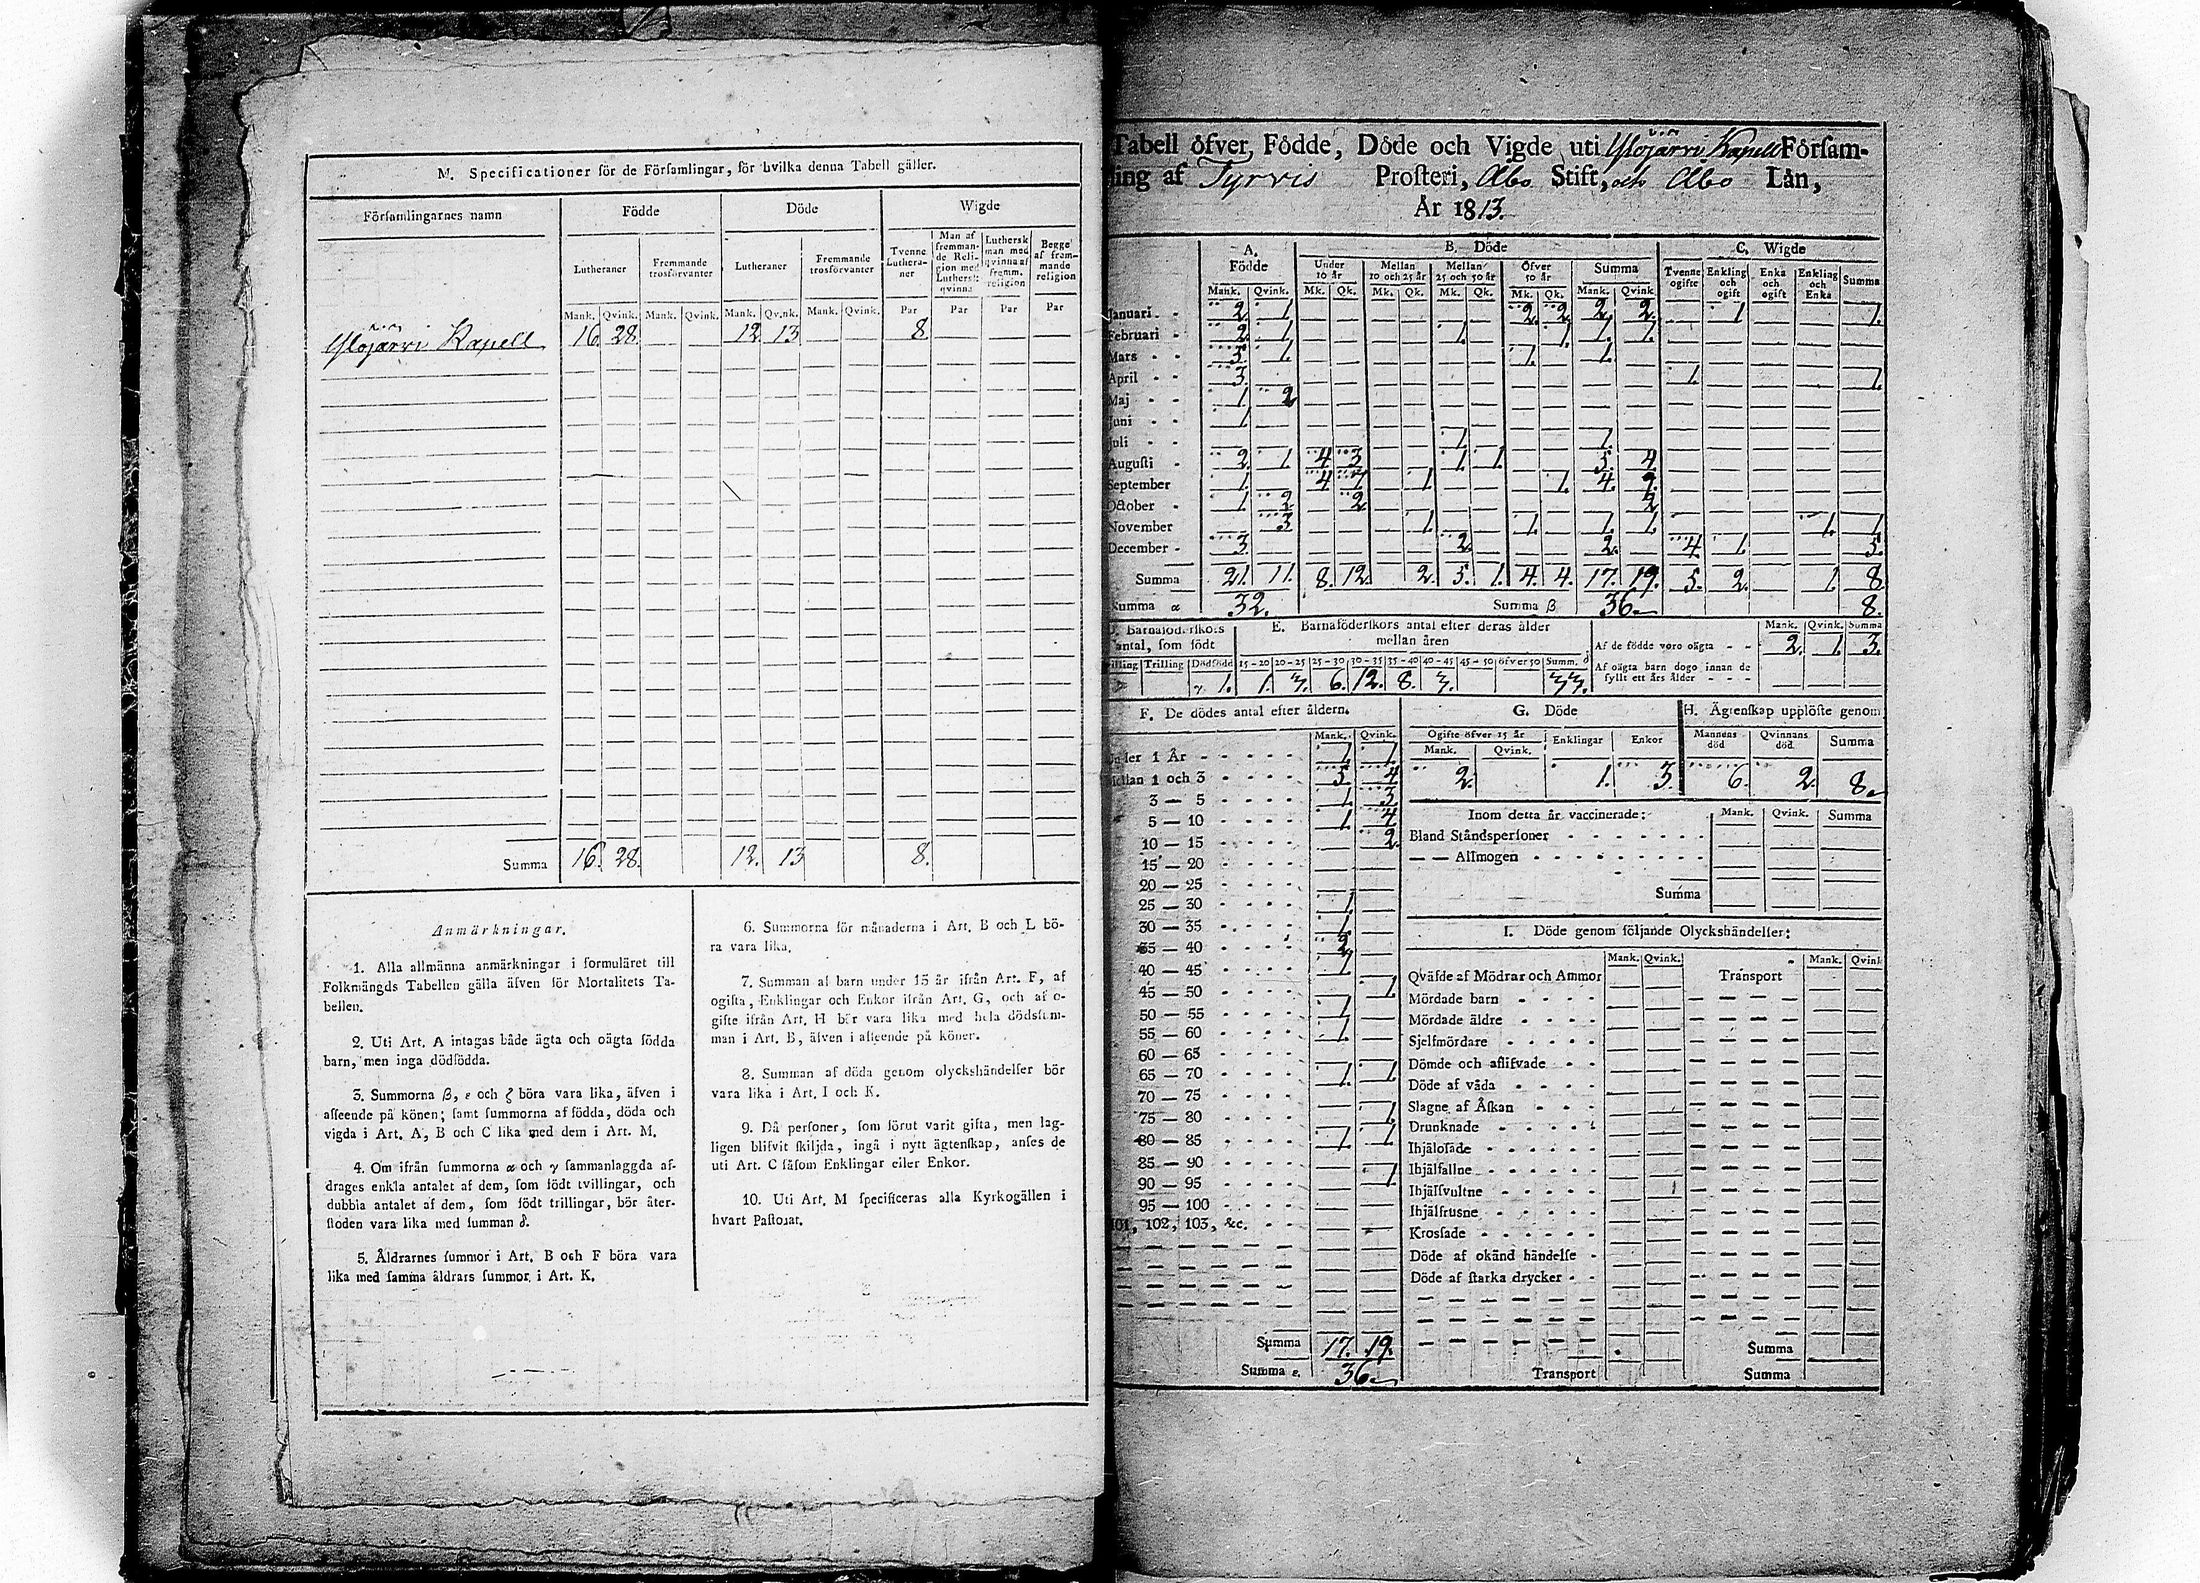 M. Specificationer för de Församlingar, för hvilka denna Tabell gäller.
Församlingarnes namn Födde Döde Wigde
Lutheraner Fremmande trosförvanter Lutheraner Fremmande trosförvanter Tvenne Lutheraner Man af fremmande Religion med Luthersk qvinna Luthersk man med qvinna af fremm. religion Begge af fremmande religion
Mank. Qvink. Mank. Qvink. Mank. Qvink. Mank. Qvink. Par Par Par Par
Ylöjärvi Kapell 16. 28. — — 12. 13 — — 8. — — —
Summa 16. 28. 12. 13 8.
Anmärkningar.
1. Alla allmänna anmärkningar i formuläret till
Folkmängds Tabellen gälla äfven för Mortalitets Ta-
bellen.
2. Uti Art. A intagas både ägta och oägta födda
barn, men inga dödfödda.
3. Summorna β, ε och ζ böra vara lika, äfven i
afseende på könen; samt summorna af födda, döda och
vigda i Art. A, B och C lika med dem i Art. M.
4. Om ifrån summorna α och γ sammanlaggda af-
drages enkla antalet af dem, som födt tvillingar, och
dubbla antalet af dem, som födt trillingar, bör åter-
stoden vara lika med summan δ.
5. Åldrarnes summor i Art. B och F böra vara
lika med samma åldrars summor i Art. K.
6. Summorna för månaderna i Art. B och L bö-
ra vara lika.
7. Summan af barn under 15 år ifrån Art. F, af
ogifta, Enklingar och Enkor ifrån Art. G, och af
gifte ifrån Art. H bör vara lika med hela dödssum-
man i Art. B, äfven i afseende på könen.
8. Summan af döda genom olyckshändelser bör
vara lika i Art. I och K.
9. Då personer, som förut varit gifta, men lag-
ligen blifvit skiljda, ingå i nytt ägtenskap, anses de
uti Art. C såsom Enklingar eller Enkor.
10. Uti Art. M specificeras alla Kyrkogällen i
hvart Pastorat.
Tabell öfver Födde, Döde och Vigde uti Ylöjärvi Kapell Församling
ling af Tyrvis Prosteri, Åbo Stift, och Åbo Län,
År 1813.
A. Födde B. Döde C. Wigde
Under 10 år Mellan 10 och 25 år Mellan 25 och 50 år Öfver 50 år Summa Tvenne ogifte Enkling och ogift Enka och ogift Enkling och Enka Summa
Mank. Qvink. Mk. Qk. Mk. Qk. Mk. Qk. Mk. Qk. Mank. Qvink.
Januari 2. 1 2. 2. 2. 2. 1 1.
Februari 2. 1 1. 1. 1. 1.
Mars 5. 1. 1. 1.
April 3. 1. 1.
Maj 1 2
Juni 1
Juli 1. 1.
Augusti 2. 1 4 3 1 1. 5. 4.
September 1. 4 7 1 1. 4. 9.
October 1. 2 2. 2
November 3 1. 1. 1. 1. 1. 1
December 3. 2. 2. 4. 1. 5.
Summa 21. 11. 8. 12. 2. 5. 1. 4. 4. 17. 19. 5. 2. 1. 8.
Summa α 32. Summa β 36 8.
D. Barnaföderskors antal, som födt
E. Barnaföderskors antal efter deras ålder mellan åren
Mank. Qvink. Summa
Trilling Dödfödd 15-20 20-25 25-30 30-35 35-40 40-45 45-50 öfver 50 Summ. δ
γ 1. 1. 6. 12. 8.
Af de födde voro oägta 2. 1. 3.
Af oägta barn dogo innan de fyllt ett års ålder
F. De dödes antal efter åldern.
Mank. Qvink.
Under 1 År 1. 1.
Mellan 1 och 3 5. 4
3 — 5 1. 3.
5 — 10 1. 4
10 — 15 2.
15 — 20
20 — 25
25 — 30 1.
30 — 35 1
35 — 40 2.
40 — 45 1
45 — 50 1.
50 — 55 1
55 — 60 1.
60 — 65
65 — 70 1. 1.
70 — 75
75 — 80 1.
80 — 85 1 1
85 — 90
90 — 95 1
95 — 100
101, 102, 103, &c.
Summa 17. 19.
Summa ε. 36
G. Döde
Ogifte öfver 15 år Enklingar Enkor
Mank. Qvink.
2. 1. 3.
H. Ägtenskap upplöste genom
Mannens död Qvinnans död. Summa
6. 2. 8.
Inom detta år vaccinerade: Mank. Qvink. Summa
Bland Ståndspersoner
— — Allmogen
Summa
I. Döde genom följande Olyckshändelser:
Mank. Qvink. Mank. Qvink
Qväfde af Mödrar och Ammor Transport
Mördade barn
Mördade äldre
Sjelfmördare
Dömde och aflifvade
Döde af våda
Slagne af Åskan
Drunknade
Ihjälosade
Ihjälfallne
Ihjälsvultne
Ihjälfrusne
Krossade
Döde af okänd händelse
Döde af starka drycker
Summa
Transport Summa